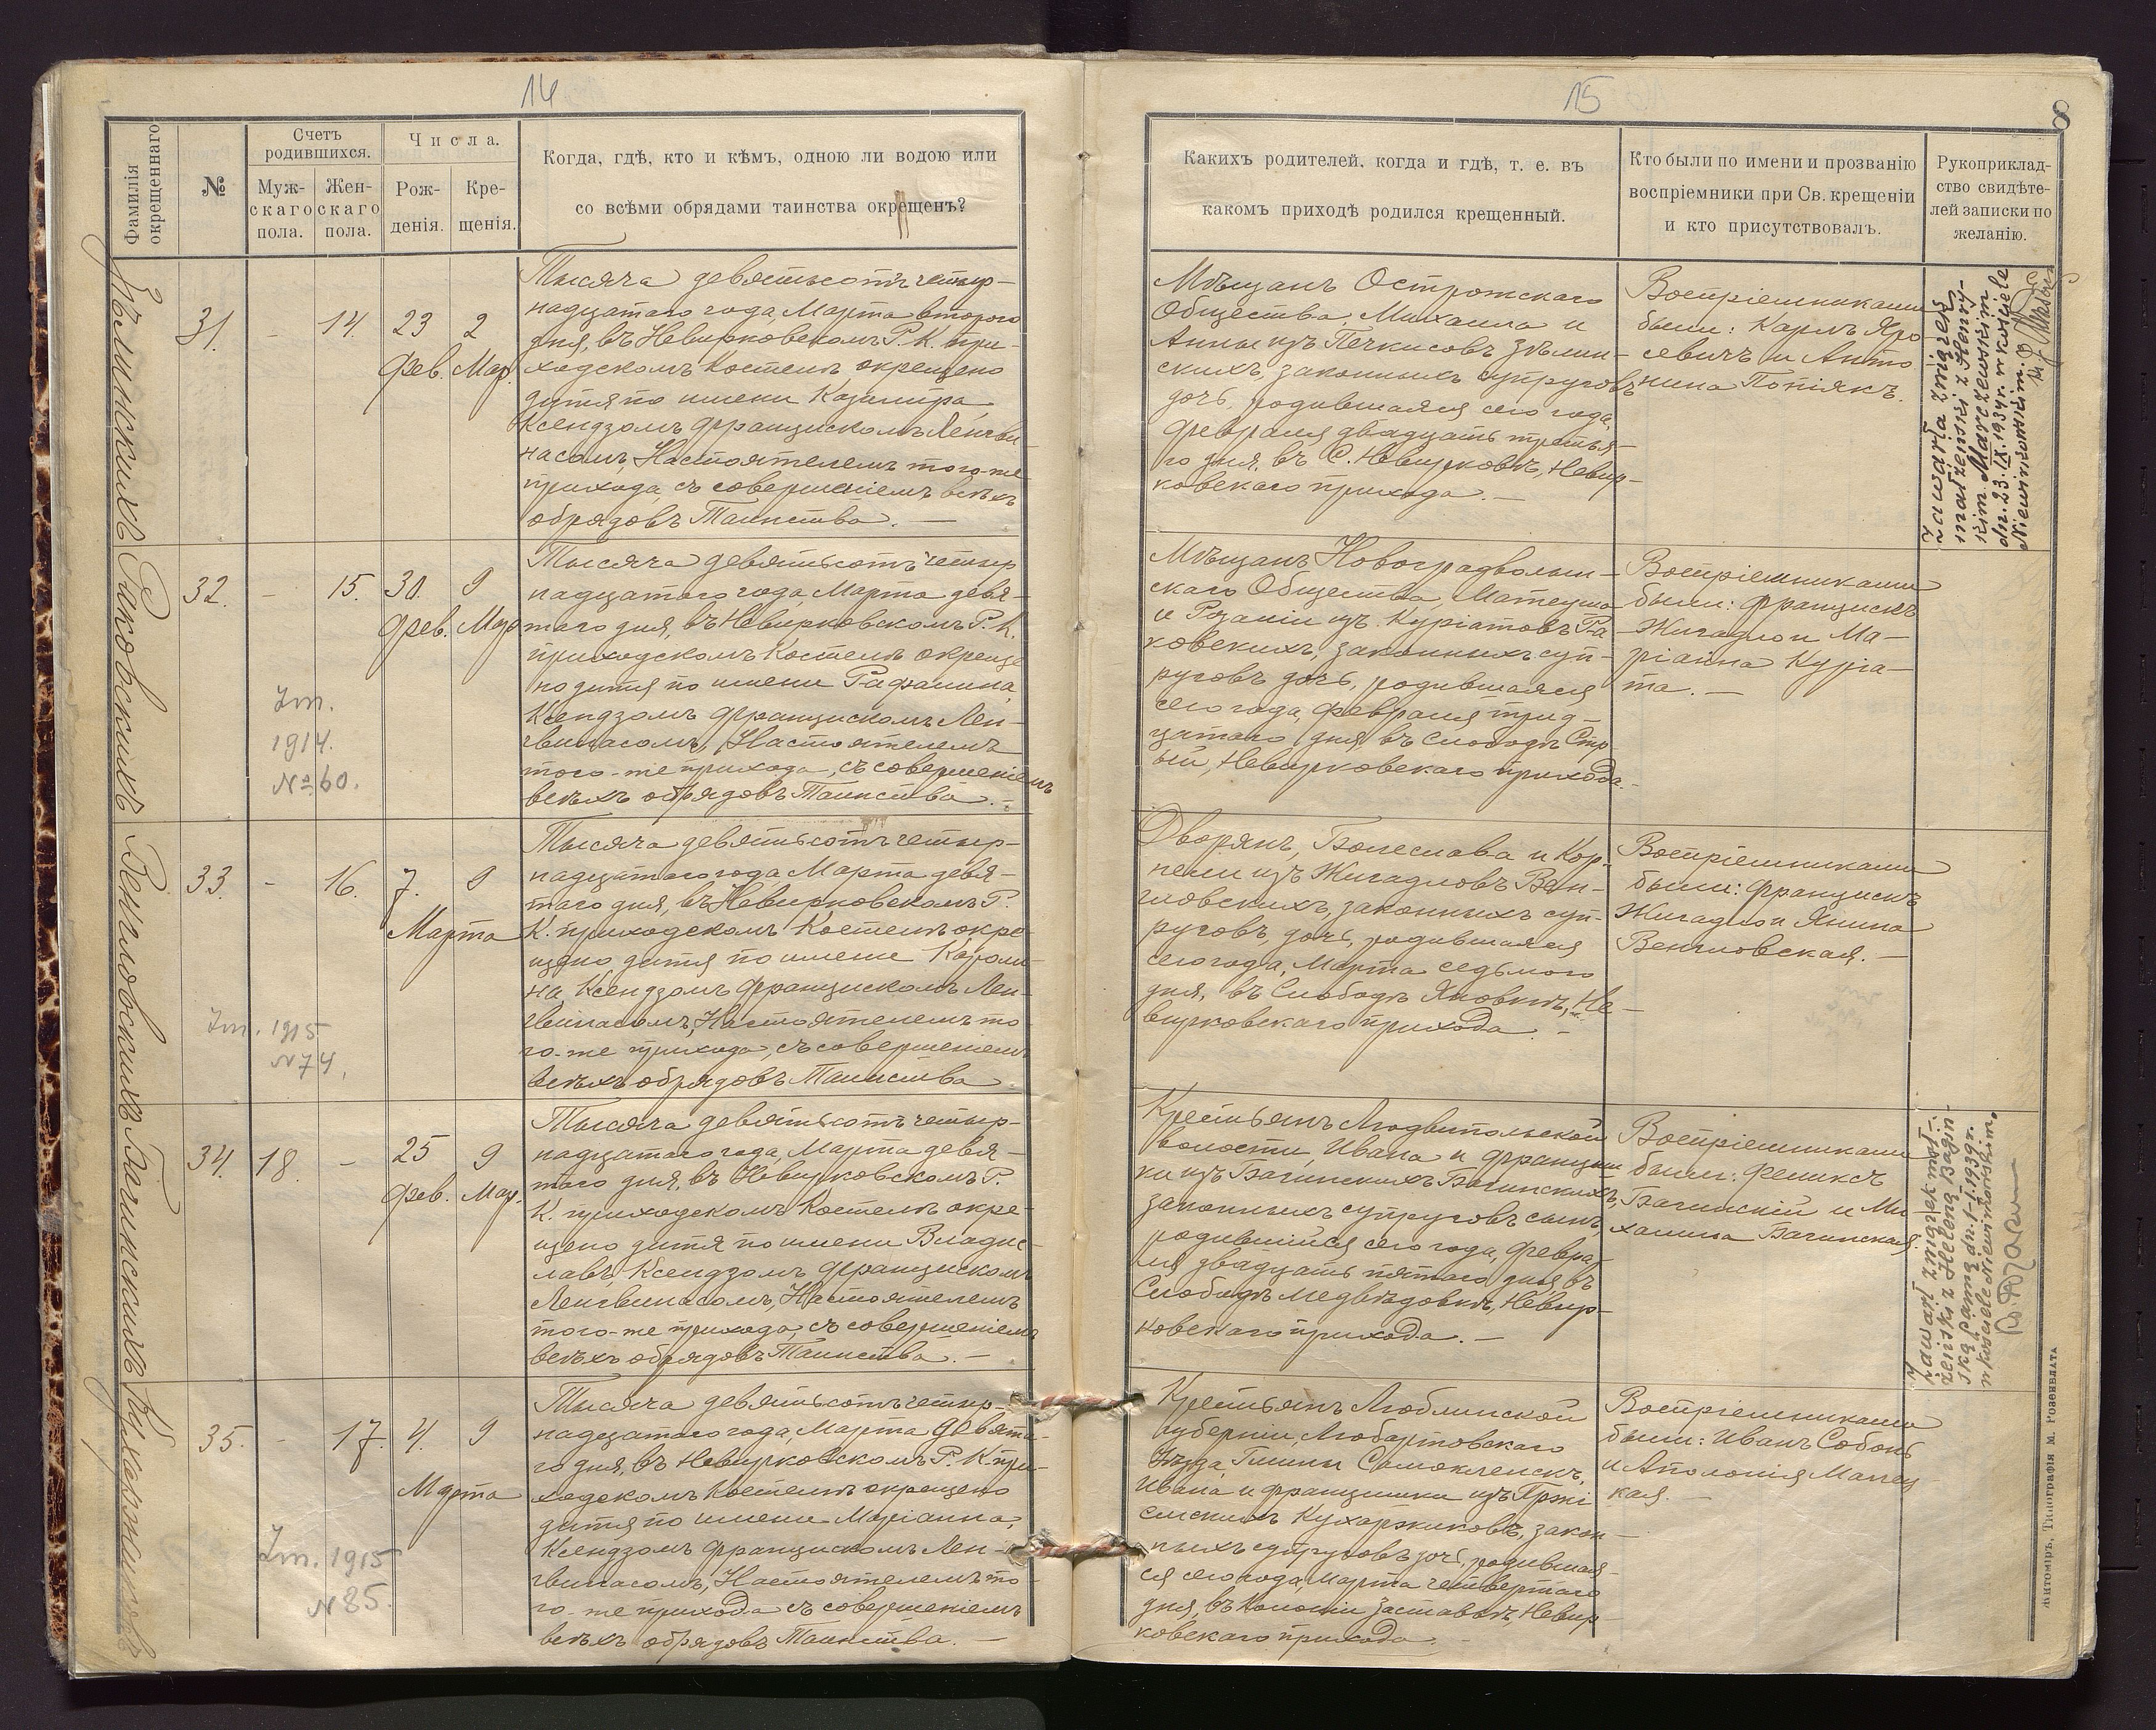 14
Фамилія окрещеннаго
№
Счетъ родившихся.
Мужскаго пола.
Женскаго пола.
Числа.
Рожденія.
Крещенія.
Когда, гдѣ, кто и кѣмъ, одною ли водою или
со всѣми обрядами таинства окрещенъ?
Зѣлинскихъ
31.
-
14.
23
Фев.
2
Мар.
Тысяча девятьсотъ четыр-
надцатаго года, Марта второго
дня, въ Невирковскомъ Р. К. при-
ходскомъ Костелѣ окрещено
дитя по имени Казимира,
Ксендзомъ Францискомъ Ленгви-
насомъ, Настоятелемъ того-же
прихода, съ совершеніемъ всѣхъ
обрядовъ Таинства. —
Раковскихъ
32.
-
15.
30.
Фев.
9
Мар
Im.
1914.
№ 60.
Тысяча девятьсотъ четыр
надцатаго года, Марта девя-
таго дня, въ Невирковскомъ Р. К.
приходскомъ Костелѣ окреще
но дитя по имени Рафалина,
Ксендзомъ Францискомъ Лен-
гвинасомъ, Настоятелемъ
того-же прихода, съ совершеніемъ
всѣхъ обрядовъ Таинства. -
Венгловскихъ
33.
-
16.
7.
Марта
9
Im. 1915
N 74.
Тысяча девятьсотъ четыр-
надцатаго года Марта девя-
таго дня, въ Невирковскомъ Р.
К. приходскомъ Костелѣ окре-
щено дитя по имени Кароли-
на, Ксендзомъ Францискомъ Лен-
гвинасомъ, Настоятелемъ то-
го-же прихода, съ совершеніемъ
всѣхъ обрядовъ Таинства.
Багинскихъ
34.
18.
-
25
Фев.
9
Мар.
Тысяча девятьсотъ четыр-
надцатаго года, Марта девя-
таго дня, въ Невирковскомъ Р.
К. приходскомъ Костелѣ окре-
щено дитя по имени Владис-
лавъ, Ксендзомъ Францискомъ
Ленгвинасомъ, Настоятелемъ
того-же прихода, съ совершеніемъ
всѣхъ обрядовъ Таинства. —
Кухаржиковъ
35.
-
17.
4.
Марта
9
Im. 1915
N 85.
Тысяча девятьсотъ четыр-
надцатаго года, Марта девята-
го дня, въ Невирковскомъ Р. К. при-
ходскомъ Костелѣ окрещено
дитя по имени Маріанна,
Ксендзомъ Францискомъ Лен-
гвинасомъ, Настоятелемъ то-
го-же прихода съ совершеніемъ
всѣхъ обрядовъ Таинства. —
15
8
Какихъ родителей. когда и гдѣ, т. е. въ
какомъ приходѣ родился крещенный.
Кто были по имени и прозванію
воспріемники при Св. крещеніи
и кто присутствовалъ.
Рукоприклад-
ство свидѣте-
лей записки по
желанію.
Мѣщанъ Острожскаго
Общества, Михаила и
Анны изъ Печкисовъ Зѣлин-
скихъ, законныхъ супруговъ
дочь, родившаяся сего года,
Февраля двадцать третья-
го дня, въ С. Невирковѣ, Невир-
ковскаго прихода. —
Воспріемниками
были: Карлъ Яро
севичъ и Анто
нина Потякъ.
Zawarła związek
małżeński z Henry-
kim Marczewskim
dn. 23. IX. 1934 r. w kościele
Niewirkowskim.
Мѣщанъ Новоградволын-
скаго Общества, Матеуша
и Розаліи изъ Куріатовъ Ра
ковскихъ, законныхъ суп-
руговъ дочь, родившаяся
сего года, Февраля трид-
цатаго дня, въ Слободѣ Стр
ый, Невирковскаго прихода. -
Воспріемниками
были: Францискъ
Жигадло и Ма-
ріанна Куріа-
та. —
Дворянъ, Болеслава и Кор-
нели изъ Жигадловъ Вен-
гловскихъ, законныхъ суп-
руговъ, дочь, родившаяся
сего года, Марта седьмого
дня, въ Слободѣ Яновкѣ, Не-
вирковскаго прихода. —
Воспріемниками
были: Францискъ
Жигадло и Янина
Венгловская. —
Крестьянъ Людвипольской
волости, Ивана и Францишки
изъ Багинскихъ Багинскихъ,
законныхъ супруговъ сынъ,
родившійся сего года, Февра-
ля двадцать пятаго дня, въ
Слободѣ Медвѣдовкѣ, Невир-
ковскаго прихода. —
Воспріемниками
были: Феликсъ
Багинскій и Ми
халина Багинская.
Zawarł związek mał-
żeński z Heleną Bagiń-
ską Panną dn. 1-I. 1939 r.
w kościele Niewirkowskim.
Крестьянъ Люблинской
губерніи, Любартовскаго
Уѣзда, Гмины Самокленскъ,
Ивана и Францишки изъ Гржі
Кухаржиковъ, закон-
ныхъ супруговъ дочь, родившая-
ся сего года, Марта четвертаго
дня, въ Колоніи Заставѣ, Невир-
ковскаго прихода. -
Воспріемниками
были: Иванъ Собонь
и Аполонія Малец-
кая. —
Житомiръ, Типографія М. Розенблата